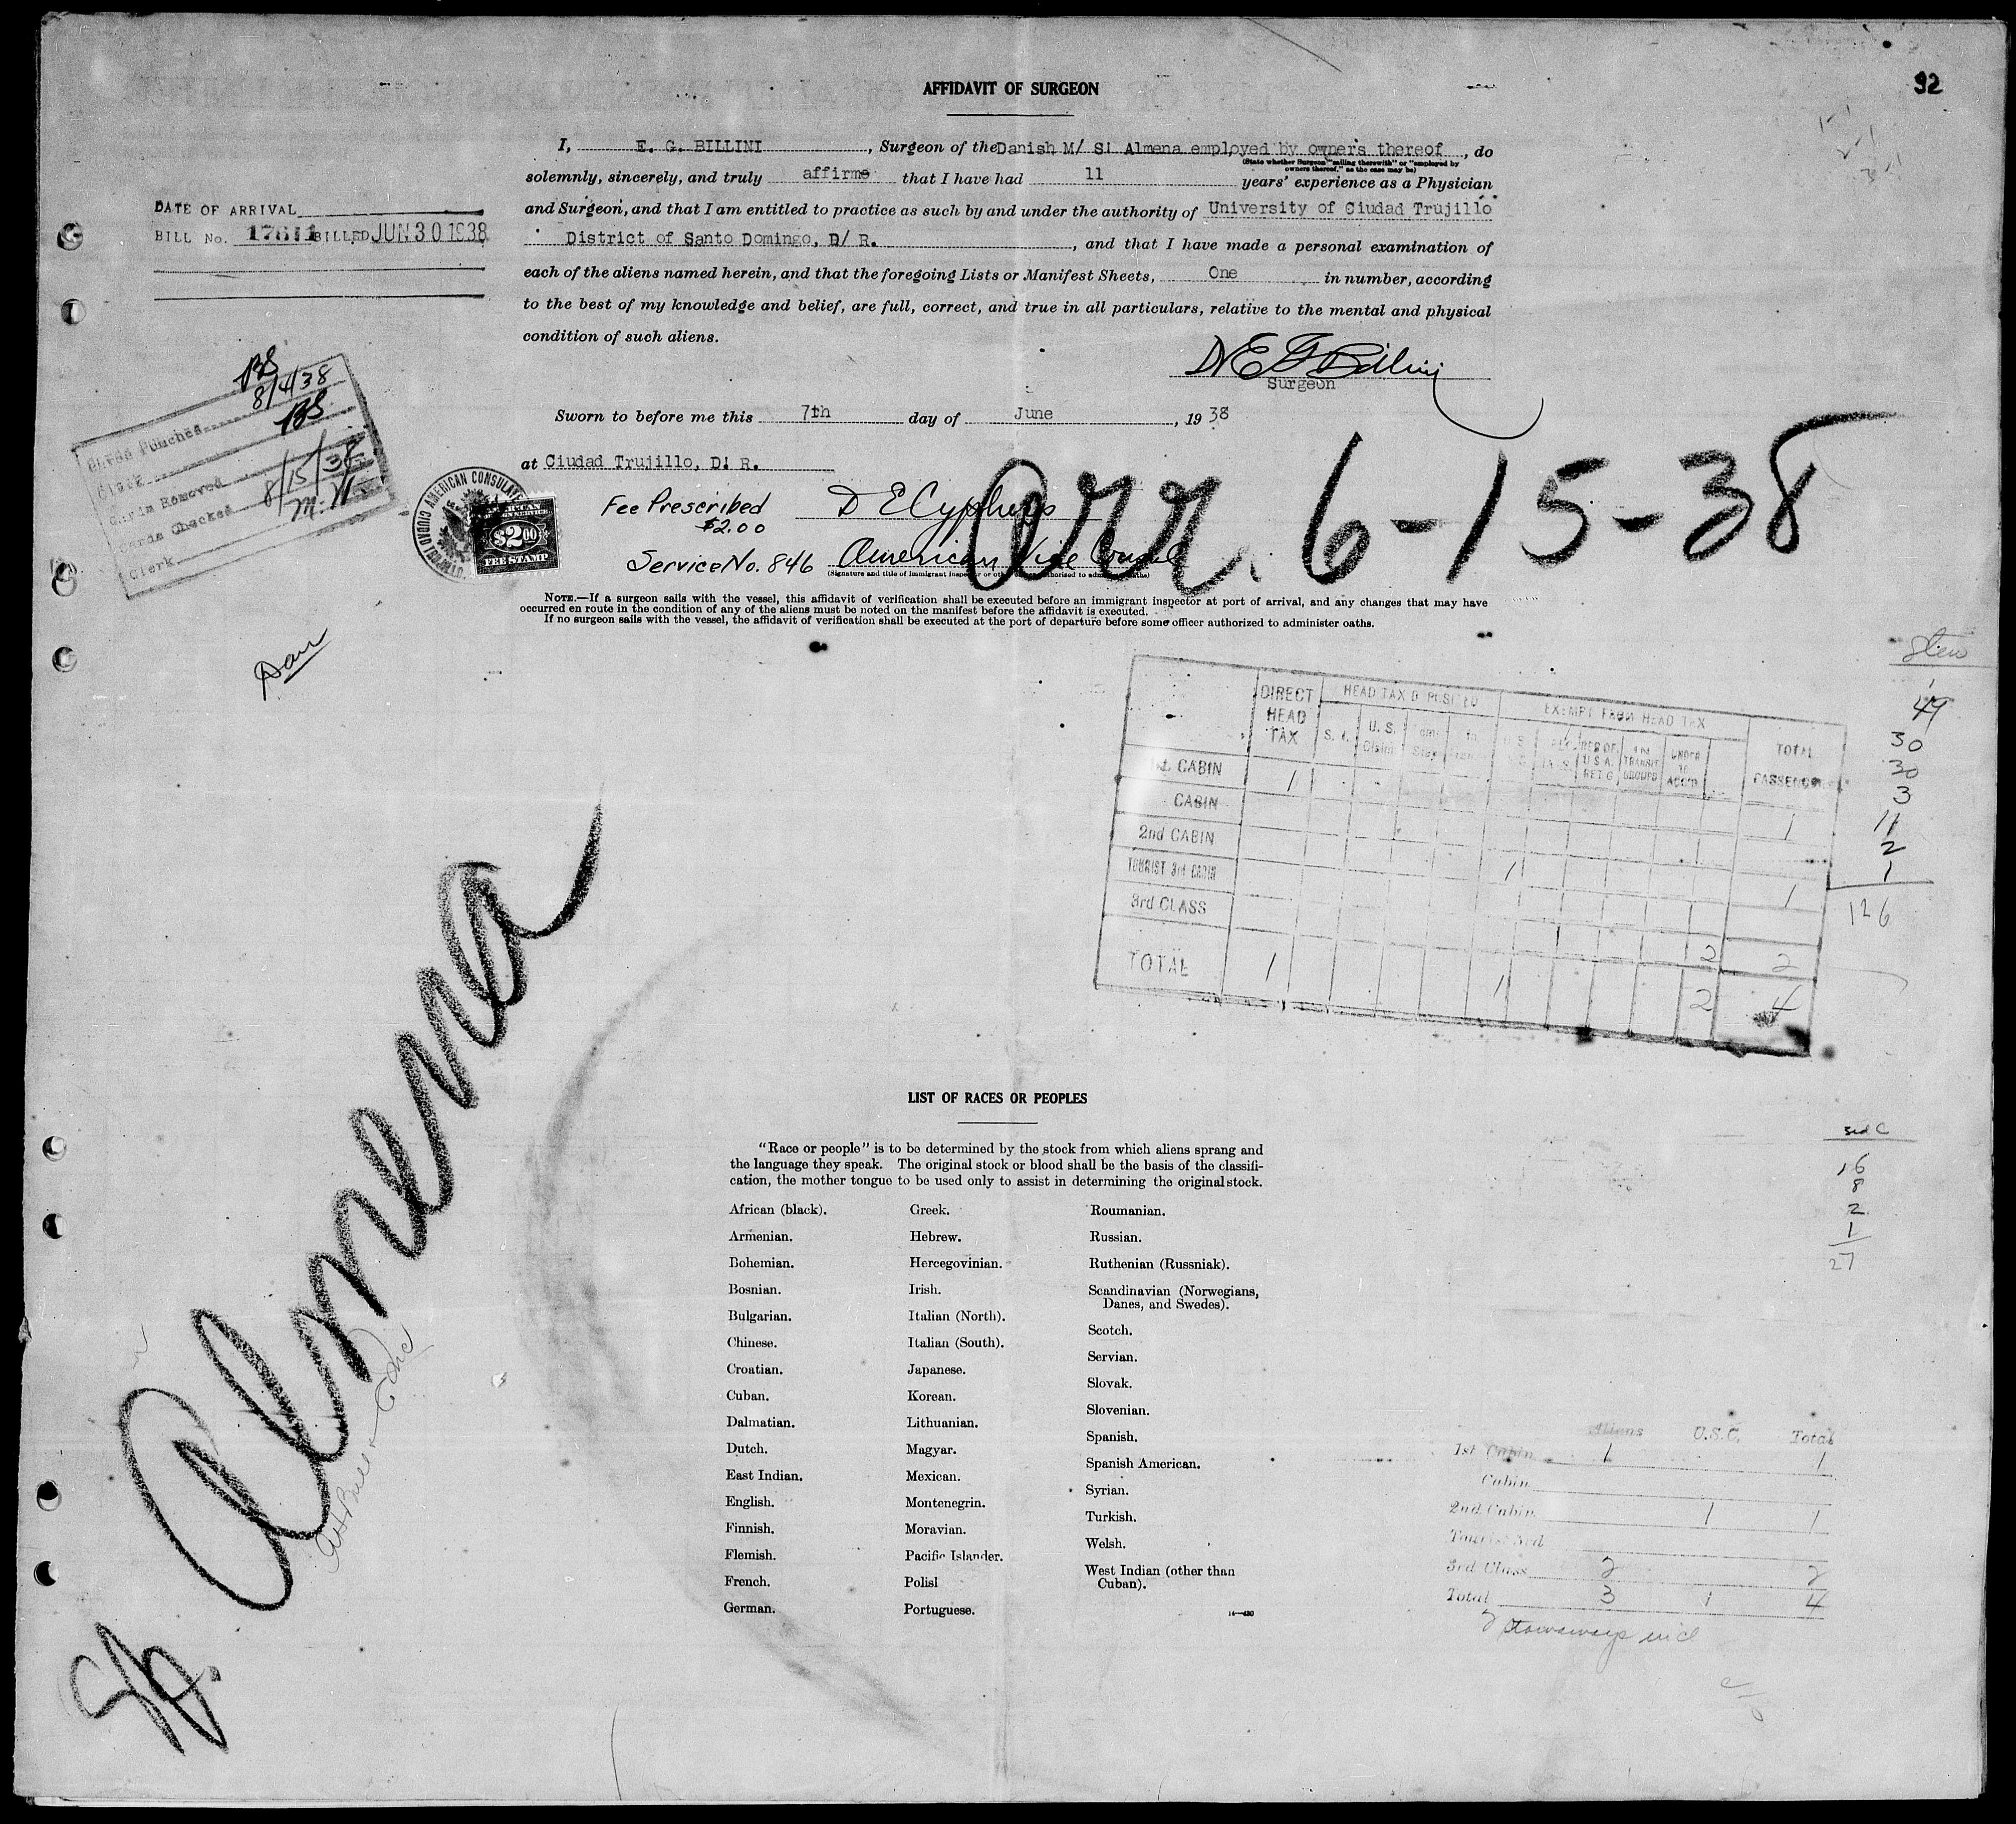 92
AFFIDAVIT OF SURGEON
I, E. G. BILLINI, Surgeon of the Danish M/ S! Almena employed by owners thereof, do
(State whether Surgeon "sailing therewith" or "employed by
owners thereof," as the case may be)
solemnly, sincerely, and truly affirms that I have had 11 years' experience as a Physician
and Surgeon, and that I am entitled to practice as such by and under the authority of University of Ciudad Trujillo
District of Santo Domingo, D/ R., and that I have made a personal examination of
each of the aliens named herein, and that the foregoing Lists or Manifest Sheets, One in number, according
to the best of my knowledge and belief, are full, correct, and true in all particulars, relative to the mental and physical
condition of such aliens.
DATE OF ARRIVAL
BILL No. 17611 BILLED JUN 30 1938
Surgeon
Sworn to before me this 7th day of June, 1938
at Ciudad Trujillo, D! R.
8/4/38
Cards Punched
Clerk
Cards Removed
Cards Checked 8/15/38
Clerk
AMERICAN CONSULATE
CIUDAD TRUJILLO
$2.00
FEE STAMP
Fee Prescribed
$2.00
Service No. 846
D E Cyphers
American Vice Consul
(Signature and title of immigrant inspector or other officer authorized to administer oaths)
arr. 6-15-38
NOTE.—If a surgeon sails with the vessel, this affidavit of verification shall be executed before an immigrant inspector at port of arrival, and any changes that may have
occurred en route in the condition of any of the aliens must be noted on the manifest before the affidavit is executed.
If no surgeon sails with the vessel, the affidavit of verification shall be executed at the port of departure before some officer authorized to administer oaths.
DIRECT HEAD TAX
HEAD TAX DEPOSITED
EXEMPT FROM HEAD TAX
TOTAL PASSENGERS
U. S. Claim
RES OF U S A. RET G
TRANSIT GROUPD
UNDER 16 ACC'D
1st CABIN 1 1
CABIN
2nd CABIN 1 1
TOURIST 3rd CABIN
3rd CLASS 2 2
TOTAL 1 1 2 4
30
30
3
11
2
1
126
Almena
LIST OF RACES OR PEOPLES
"Race or people" is to be determined by the stock from which aliens sprang and
the language they speak. The original stock or blood shall be the basis of the classifi-
cation, the mother tongue to be used only to assist in determining the original stock.
African (black).
Armenian.
Bohemian.
Bosnian.
Bulgarian.
Chinese.
Croatian.
Cuban.
Dalmatian.
Dutch.
East Indian.
English.
Finnish.
Flemish.
French.
German.
Greek.
Hebrew.
Hercegovinian.
Irish.
Italian (North).
Italian (South).
Japanese.
Korean.
Lithuanian.
Magyar.
Mexican.
Montenegrin.
Moravian.
Pacific Islander.
Polisl
Portuguese.
Roumanian.
Russian.
Ruthenian (Russniak).
Scandinavian (Norwegians,
Danes, and Swedes).
Scotch.
Servian.
Slovak.
Slovenian.
Spanish.
Spanish American.
Syrian.
Turkish.
Welsh.
West Indian (other than
Cuban).
3rd C
16
8
2
1
27
Aliens U.S.C. Total
1st Cabin 1 1
Cabin
2nd Cabin 1 1
Tourist 3rd
3rd Class 2 2
Total 3 1 4
2 stowaways incl